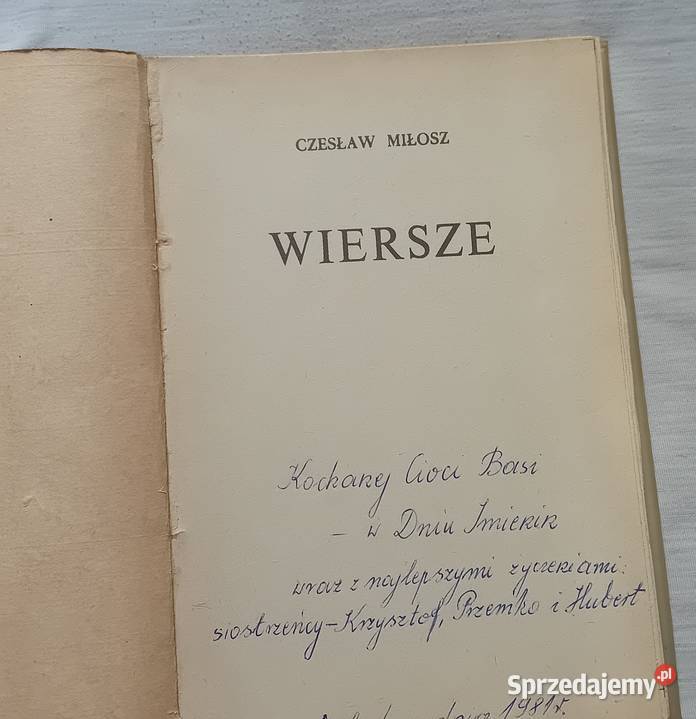 CZESŁAW MIŁOSZ
WIERSZE
Kochanej Cioci Basi
– w Dniu Imienin
wraz z najlepszymi życzeniami:
siostrzeńcy – Krzysztof, Przemko i Hubert
1981r.
Sprzedajemy.pl